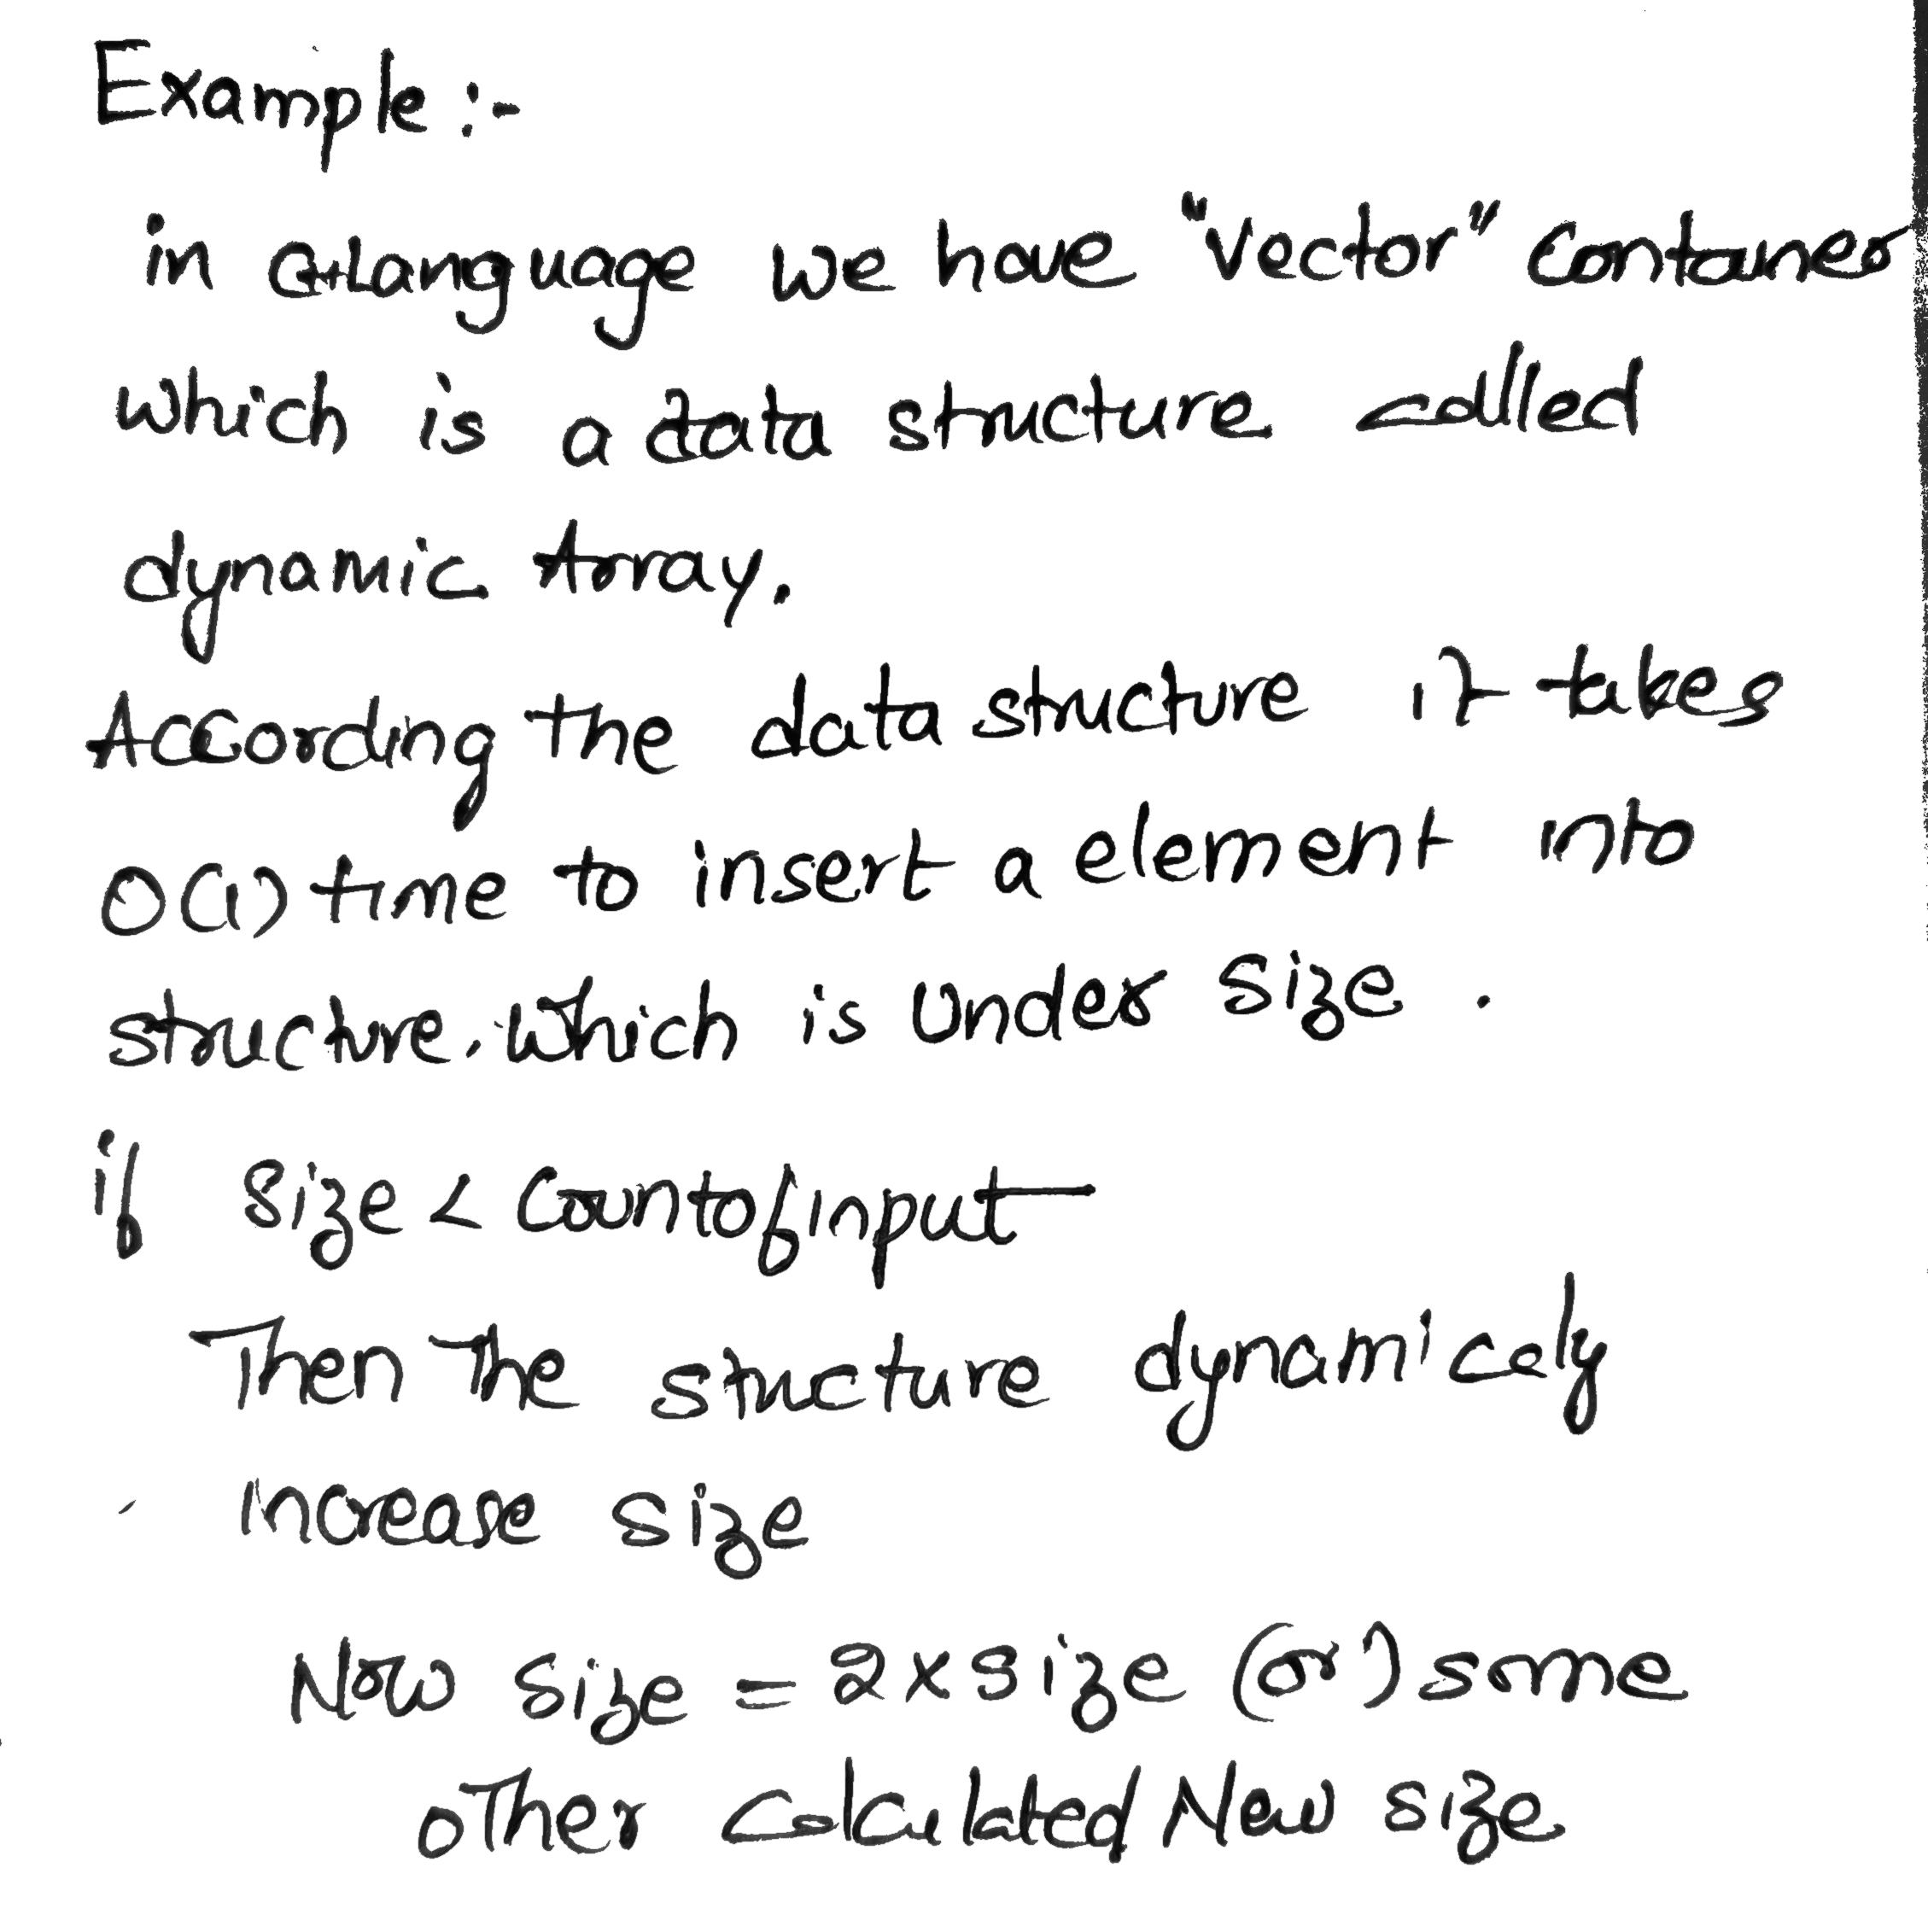 Example :-
in C++ language we have "Vector" Container
which is a data structure called
dynamic Array.
According the data structure it takes
O(1) time to insert a element into
structure. Which is Under size .
if size < Countofinput
Then The structure dynamicaly
increase size
Now size = 2 x size (or) some
other calculated New size